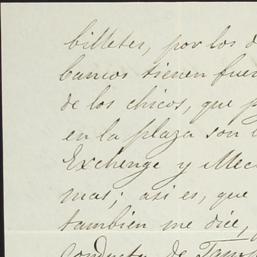 billetes, por los d
bancos tienen fuer
de los chicos, que p
en la plaza son l
Exchenge y Mec
mas; asi es, que
tambien me dice,
conducta de Tam